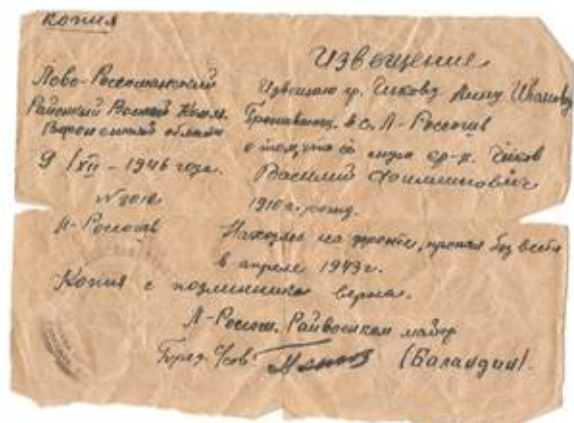 Копия
Извещение
Ново-Россошанский
Районный Военный Комис.
Воронежской области
9/XII - 1946 года.
№ 2010
Н-Россошь
Извещаю гр. Чикову Анну Ивановну
Прожив в с. Н-Россошь
о том, что её муж кр-ц Чиков
Василий
1910 г. рожд.
Находясь на фронте, пропал без вести
в апреле 1943 г.
Копия с подлинника верна.
Н-Россош. Райвоенком майор
(Баландин).